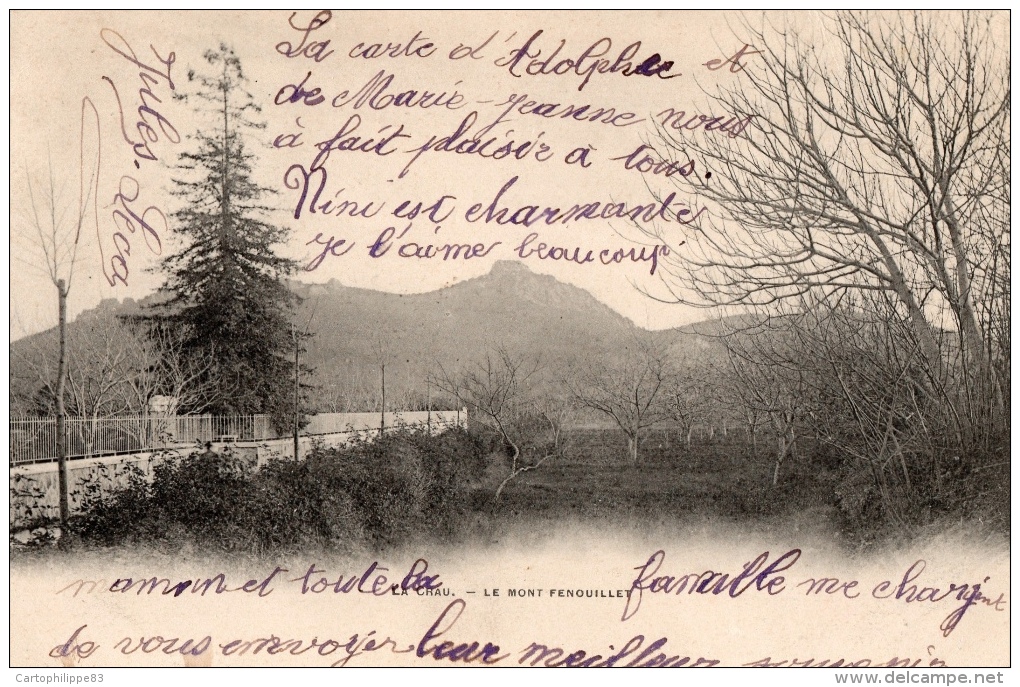 La carte d'Adolphe et
de Marie-Jeanne nous
à fait plaisir à tous.
Nini est charmante
je l'aime beaucoup
Jules
maman et toute la famille me chargent
LA CRAU. - LE MONT FENOUILLET
de vous envoyer leur meilleur souvenir
© Cartophilippe83
www.delcampe.net